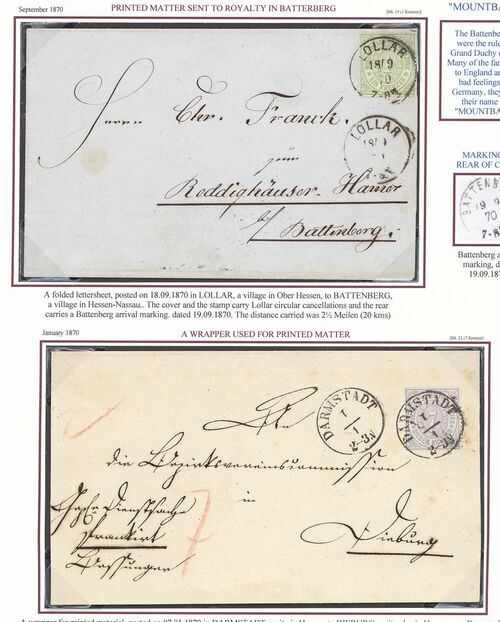 September 1870
PRINTED MATTER SENT TO ROYALTY IN BATTERBERG
[Mi. 19 (1 Kreuzer)]
"MOUNTBA
LOLLAR
18/9
70
Herrn Chr. Franck.
LOLLAR
zum
Reddighäuser-Hamer
b/ Battenberg.
The Battenbe
were the rule
Grand Duchy o
Many of the fam
to England an
bad feelings
Germany, they
their name
"MOUNTBA
MARKING
REAR OF C
BATTENB
19 9
70
7-8
Battenberg a
marking, d
19.09.187
A folded lettersheet, posted on 18.09.1870 in LOLLAR, a village in Ober Hessen, to BATTENBERG,
a village in Hessen-Nassau.. The cover and the stamp carry Lollar circular cancellations and the rear
carries a Battenberg arrival marking. dated 19.09.1870. The distance carried was 2½ Meilen (20 kms)
January 1870
A WRAPPER USED FOR PRINTED MATTER
[Mi. 22 (7 Kreuzer)]
DARMSTADT
2-3N
DARMSTADT
2-3N
An
die Bezirksvereinscommission
in
Dieburg
Dienstsache
Frankirt
A wrapper for printed material, posted on 07.01.1870 in DARMSTADT